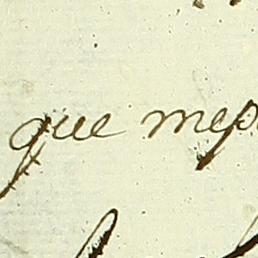 que mep